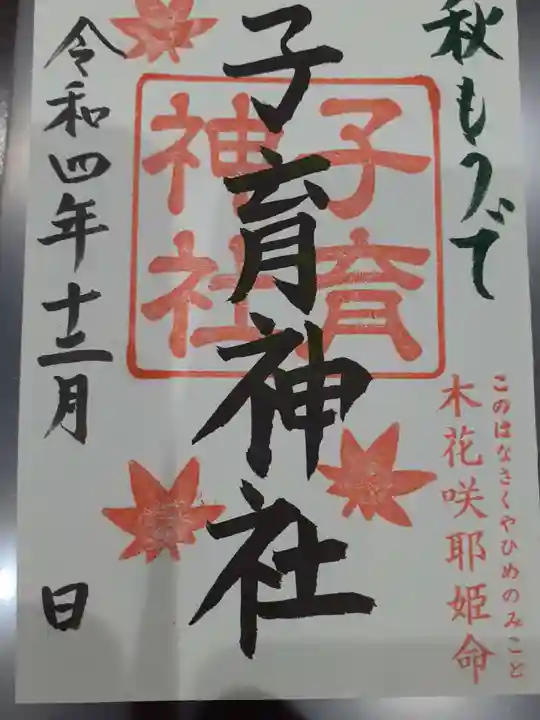 秋もうで
このはなさくやひめのみこと
木花咲耶姫命
子育神社
子育
神社
令和四年十二月 日